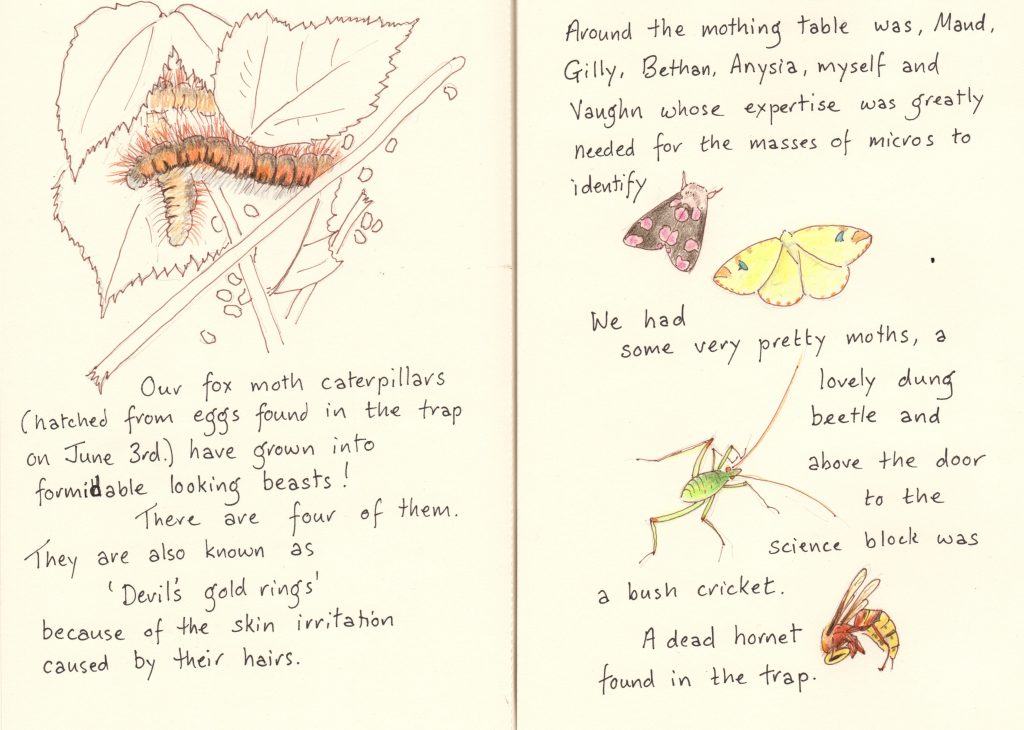 Our fox moth caterpillars
(hatched from eggs found in the trap
on June 3rd.) have grown into
formidable looking beasts!
There are four of them.
They are also known as
'Devil's gold rings'
because of the skin irritation
caused by their hairs.
Around the mothing table was, Maud,
Gilly, Bethan, Anysia, myself and
Vaughn whose expertise was greatly
needed for the masses of micros to
identify
We had
some very pretty moths, a
lovely dung
beetle and
above the door
to the
science block was
a bush cricket.
A dead hornet
found in the trap.